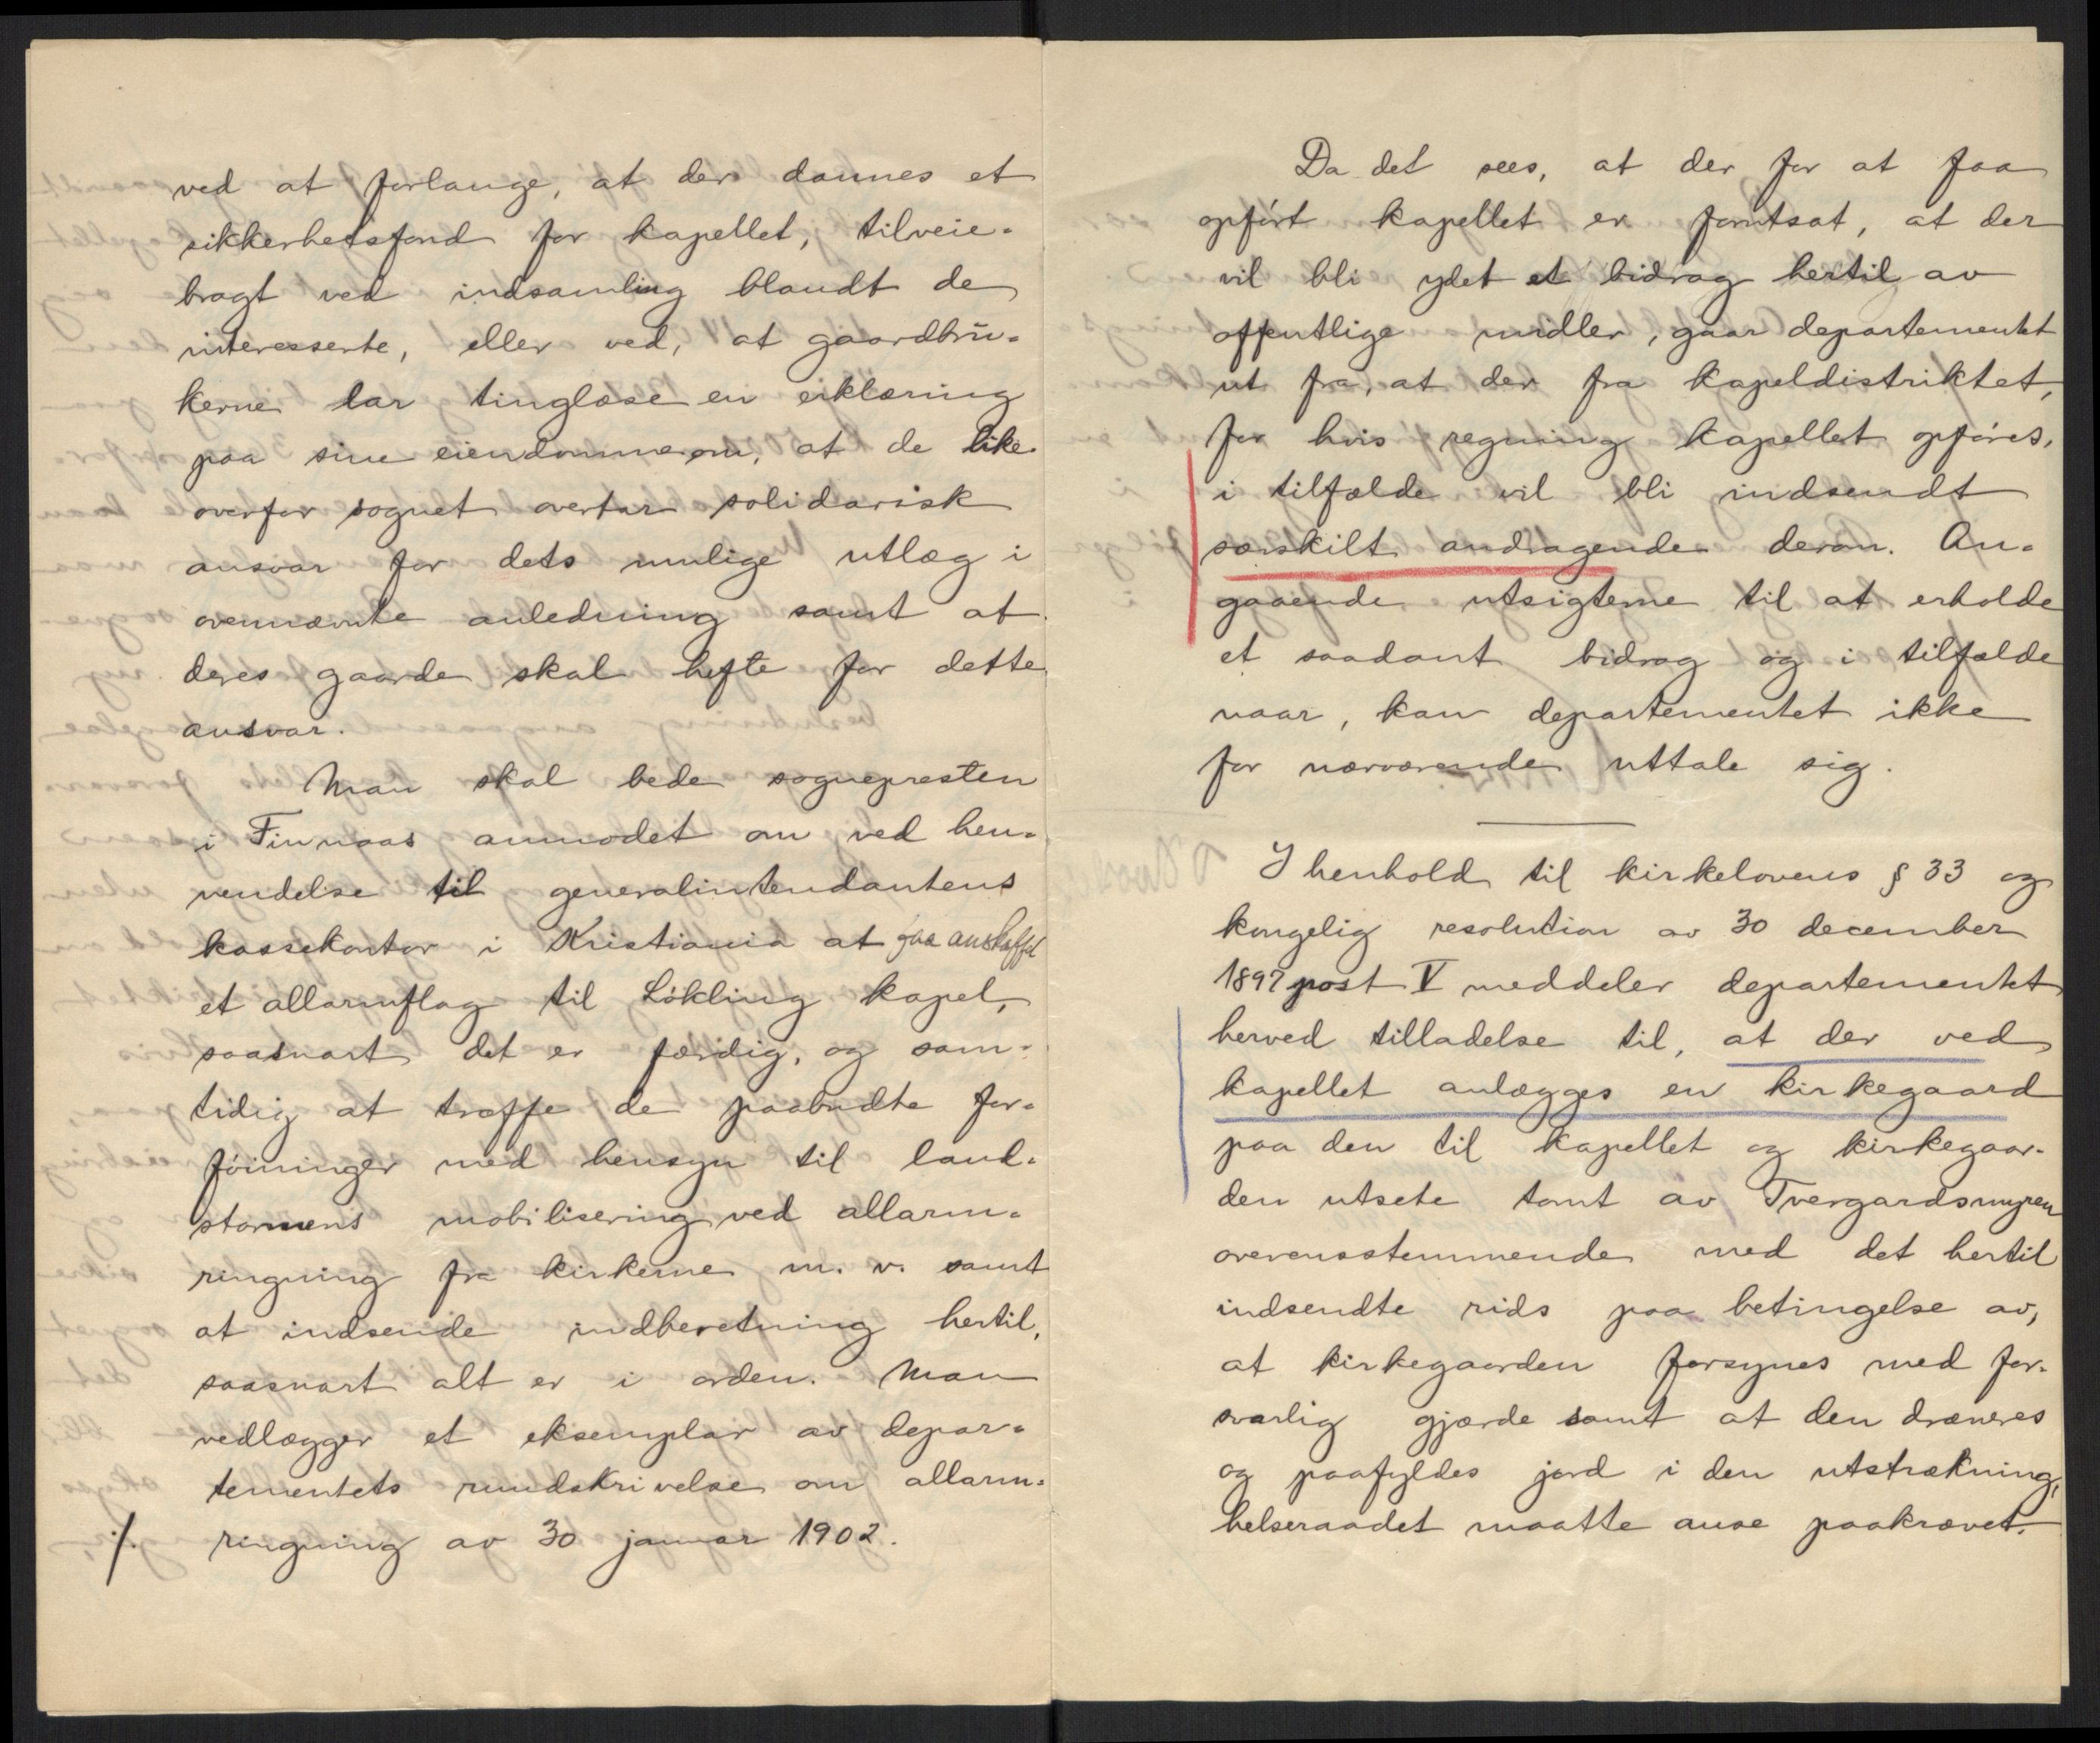 ved at forlange, at der dannes et
sikkerhetsfond for kapellet, tilveie-
bragt ved indsamling blandt de
interesserte, eller ved, at gaardbru-
kerne lar tinglæse en erklæring
paa sine eiendomme om, at de like-
overfor sognet overtar solidarisk
ansvar for dets mulige utlæg i
ovennævnte anledning samt at
deres gaarde skal hefte for dette
ansvar.
Man skal bede sognepresten
i Finnaas anmodet om ved hen-
vendelse til generalintendantens
kassekontor i Kristiania at faa anskaffet
et allarmflag til Løkling kapel,
saasnart det er færdig, og sam-
tidig at træffe de paabudte for-
føininger med hensyn til land-
stormens mobilisering ved allarm-
ringning fra kirkerne m. v. samt
at indsende indberetning hertil,
saasnart alt er i orden. Man
vedlægger et eksemplar av depar-
tementets rundskrivelse om allarm-
./. ringning av 30 januar 1902.
Da det sees, at der for at faa
opført kapellet er forutsat, at der
vil bli ydet et bidrag hertil av
offentlige midler, gaar departementet
ut fra, at der fra kapeldistriktet,
for hvis regning kapellet opføres,
i tilfælde vil bli indsendt
særskilt andragende derom. An-
gaaende utsigterne til at erholde
et saadant bidrag og i tilfælde
naar, kan departementet ikke
for nærværende uttale sig.
I henhold til kirkelovens § 33 og
kongelig resolution av 30 december
1897 post V meddeler departementet
herved tilladelse til, at der ved
kapellet anlægges en kirkegaard
paa den til kapellet og kirkegaar-
den utsete tomt av Tvergardsmyren
overensstemmende med det hertil
indsendte rids paa betingelse av,
at kirkegaarden forsynes med for-
svarlig gjærde samt at den dræneres
og paafyldes jord i den utstrækning,
helseraadet maatte anse paakrævet.